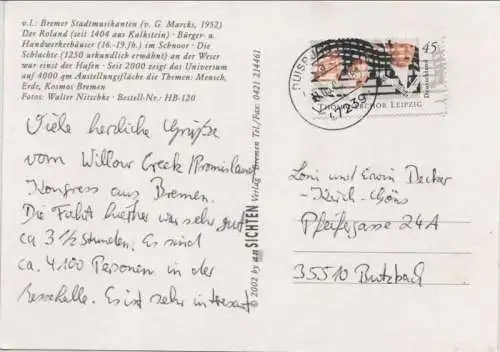 v.l.: Bremer Stadtmusikanten (v. G. Marcks, 1952)
Der Roland (seit 1404 aus Kalkstein) · Bürger- und
Handwerkerhäuser (16.-19.Jh.) im Schnoor · Die
Schlachte (1250 urkundlich erwähnt) an der Weser
war einst der Hafen · Seit 2000 zeigt das Universum
auf 4000 qm Austellungsfläche die Themen: Mensch,
Erde, Kosmos Bremen
Fotos: Walter Nitschke · Bestell-Nr.: HB-120
Viele herzliche Grüße
vom Willow Creek Promisland
Kongress aus Bremen.
Die Fahrt hierher war sehr gut
ca 3 1/2 Stunden. Es sind
ca. 4100 Personen in der
Messehalle. Es ist sehr interessant
2002 by anSICHTEN Verlag · Bremen Tel./Fax: 0421 214461
45
Deutschland
LEIPZIG
47239
Loni und Erwin Decker
Pfeifergasse 24A
35510 Butzbach